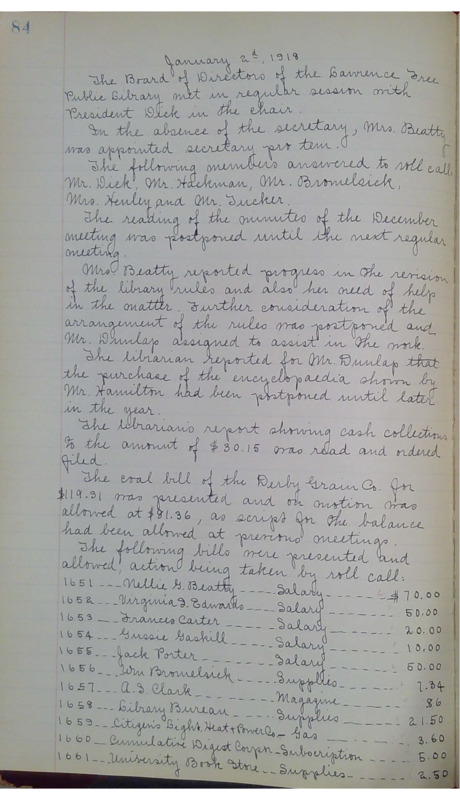 84
January 2d, 1918
The Board of Directors of the Lawrence Free
Public Library met in regular session with
President Dick in the chair.
In the absence of the secretary, Mrs. Beatty
was appointed secretary pro tem.
The following members answered to roll call
Mr. Dick, Mr. Hackman, Mr. Bromelsick,
Mrs. Henley and Mr. Tucker.
The reading of the minutes of the December
meeting was postponed until the next regular
meeting.
Mrs. Beatty reported progress in the revision
of the library rules and also her need of help
in the matter. Further consideration of the
arrangement of the rules was postponed and
Mr. Dunlap assigned to assist in the work.
The librarian reported for Mr. Dunlap that
the purchase of the encyclopaedia shown by
Mr. Hamilton had been postponed until later
in the year.
The librarian's report showing cash collections
to the amount of $30.15 was read and ordered
filed.
The coal bill of the Derby Grain Co. for
$119.31 was presented and on motion was
allowed at $81.36, as script for the balance
had been allowed at previous meetings.
The following bills were presented and
allowed, action being taken by roll call:
1651 --- Nellie G. Beatty --- Salary --- $70.00
1652 --- Virginia F. Edwards --- Salary --- 50.00
1653 --- Frances Carter --- Salary --- 20.00
1654 --- Gussie Gaskill --- Salary --- 10.00
1655 --- Jack Porter --- Salary --- 50.00
1656 --- Wm Bromelsick --- Supplies --- 7.34
1657 --- A.F. Clark --- Magazine --- 86
1658 --- Library Bureau --- Supplies --- 21.50
1659 -- Citizen's Light, Heat & Power Co -- Gas --- 3.60
1660 -- Cumulative Digest Corpn - Subscription --- 5.00
1661 --- University Book Store -- Supplies --- 2.50